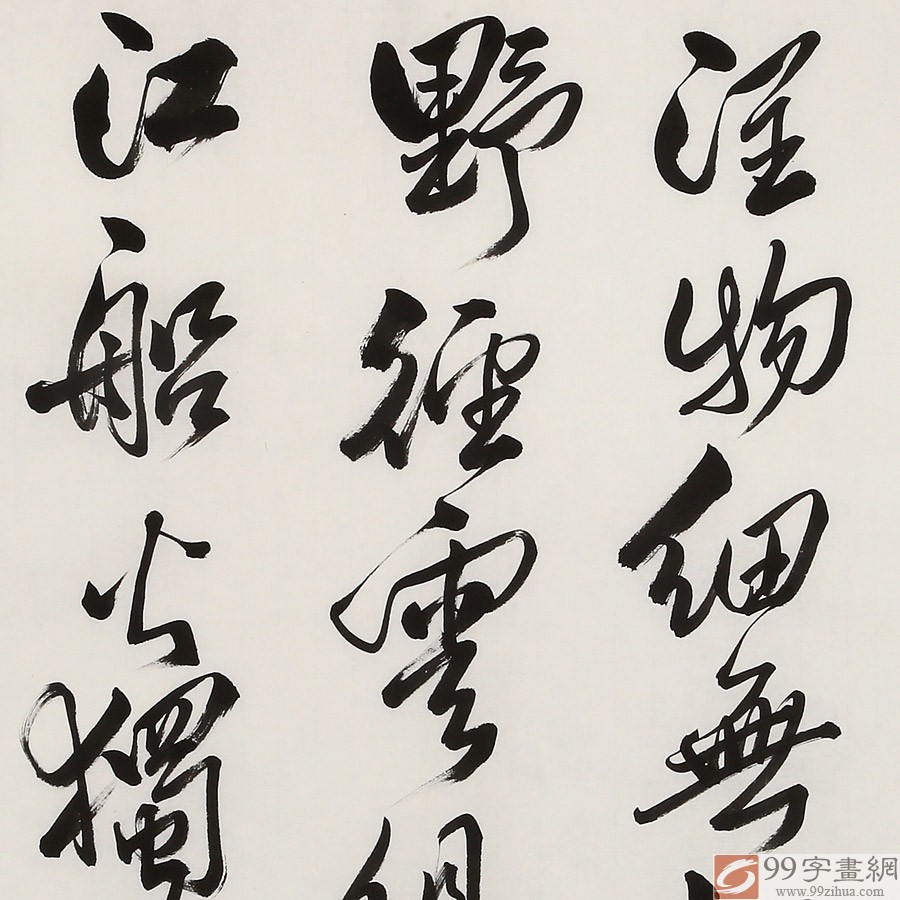 潤物細無
野徑雲
江船火獨
99字畫網
www.99zihua.com